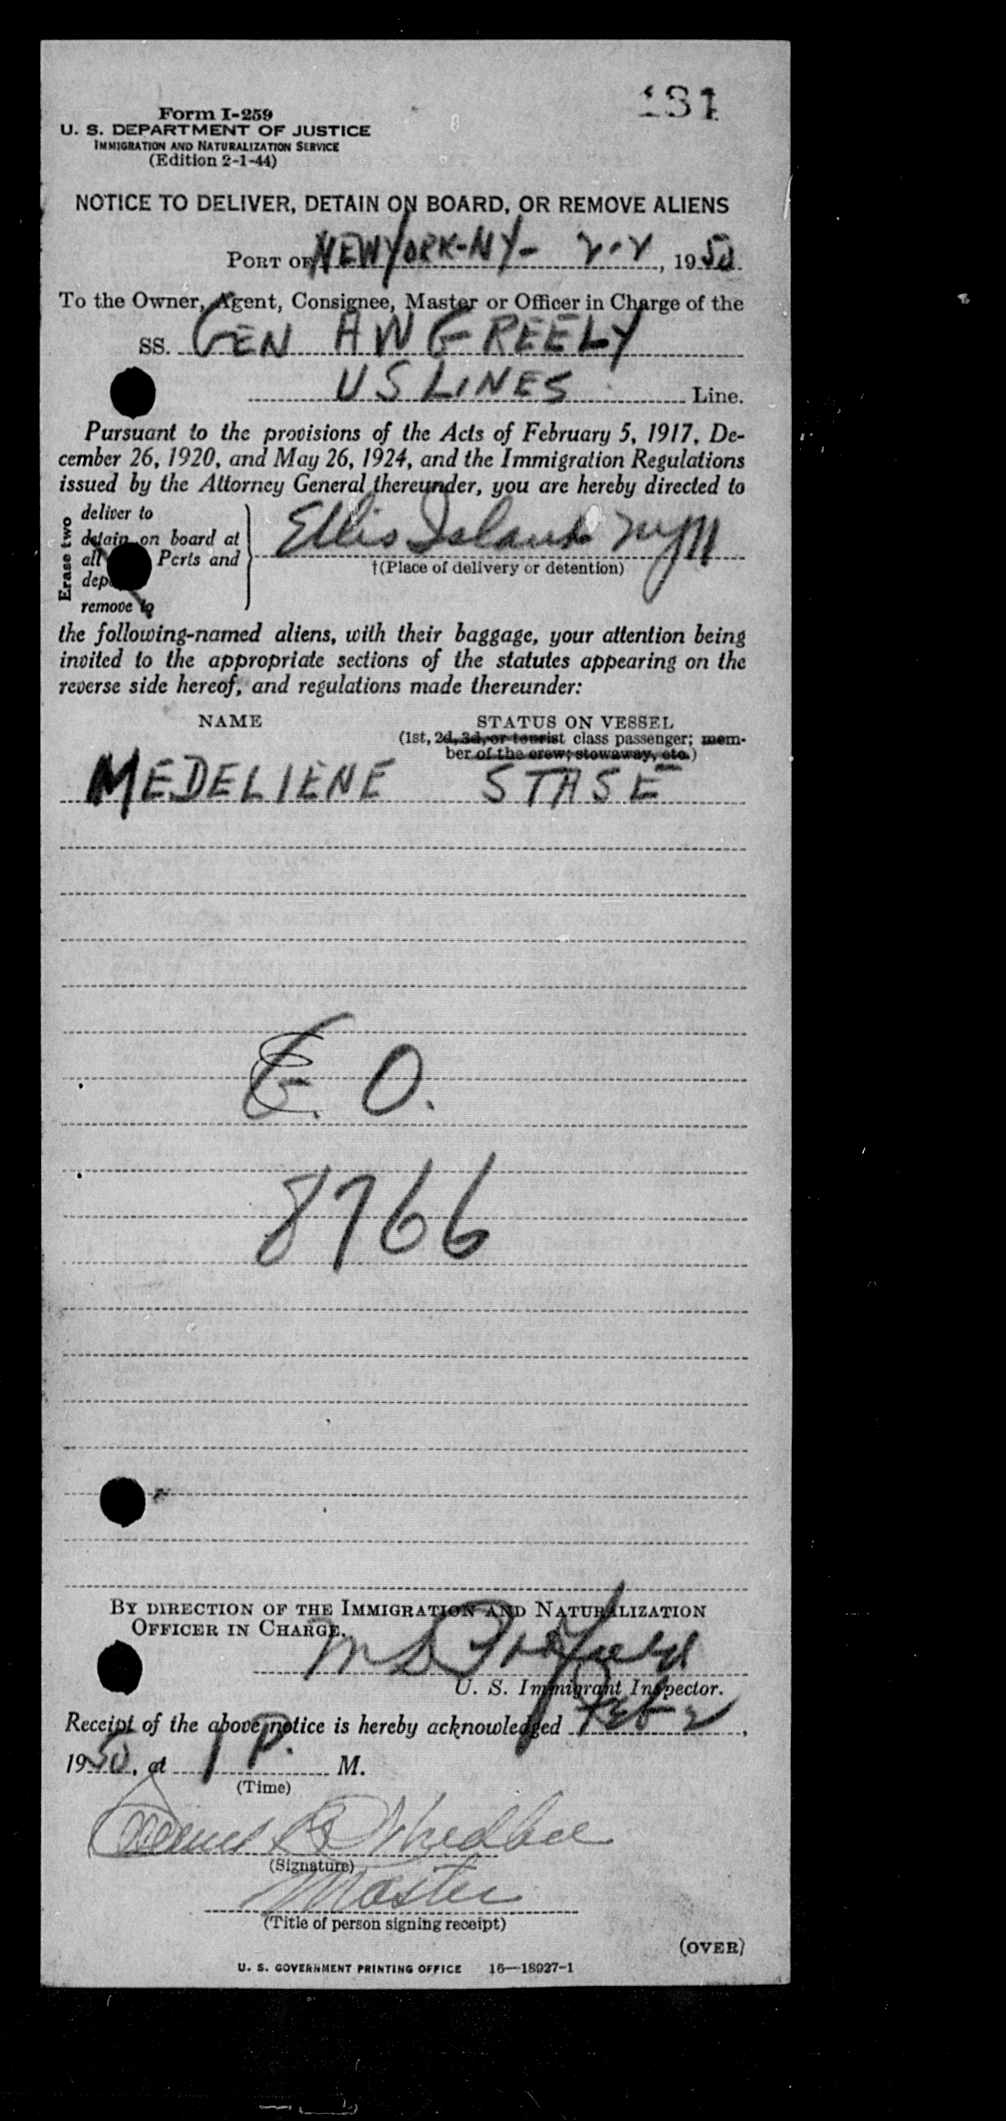 181
Form I-259
U. S. DEPARTMENT OF JUSTICE
IMMIGRATION AND NATURALIZATION SERVICE
(Edition 2-1-44)
NOTICE TO DELIVER, DETAIN ON BOARD, OR REMOVE ALIENS
PORT OF NEW YORK-NY- 2-2, 1950
To the Owner, Agent, Consignee, Master or Officer in Charge of the
SS. GEN A W GREELY
US LINES Line.
Pursuant to the provisions of the Acts of February 5, 1917, De-
cember 26, 1920, and May 26, 1924, and the Immigration Regulations
issued by the Attorney General thereunder, you are hereby directed to
Erase two
deliver to
detain on board at
all Ports and
remove to
Ellis Island NYH
†(Place of delivery or detention)
the following-named aliens, with their baggage, your attention being
invited to the appropriate sections of the statutes appearing on the
reverse side hereof, and regulations made thereunder:
NAME STATUS ON VESSEL
(1st, 2d, 3d, or tourist class passenger; mem-
ber of the crew; stowaway, etc.)
MEDELIENE STASE
E. O.
8766
BY DIRECTION OF THE IMMIGRATION AND NATURALIZATION
OFFICER IN CHARGE.
U. S. Immigrant Inspector.
Receipt of the above notice is hereby acknowledged Feb 2,
1950, at 1 P. M.
(Time)
(Signature)
Master
(Title of person signing receipt)
(OVER)
U. S. GOVERNMENT PRINTING OFFICE 16—18927-1